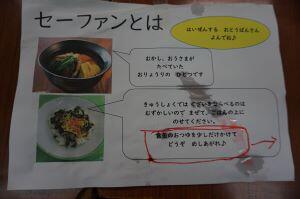 セーファンとは
はいぜんする おとうばんさん
よんでね♪
むかし、おうさまが
たべていた
おりょうりの ひとつです
きゅうしょくでは
むずかしいので まぜて、ごはんの上に
のせてください。
のおつゆを少しだけかけて
どうぞ めしあがれ♪